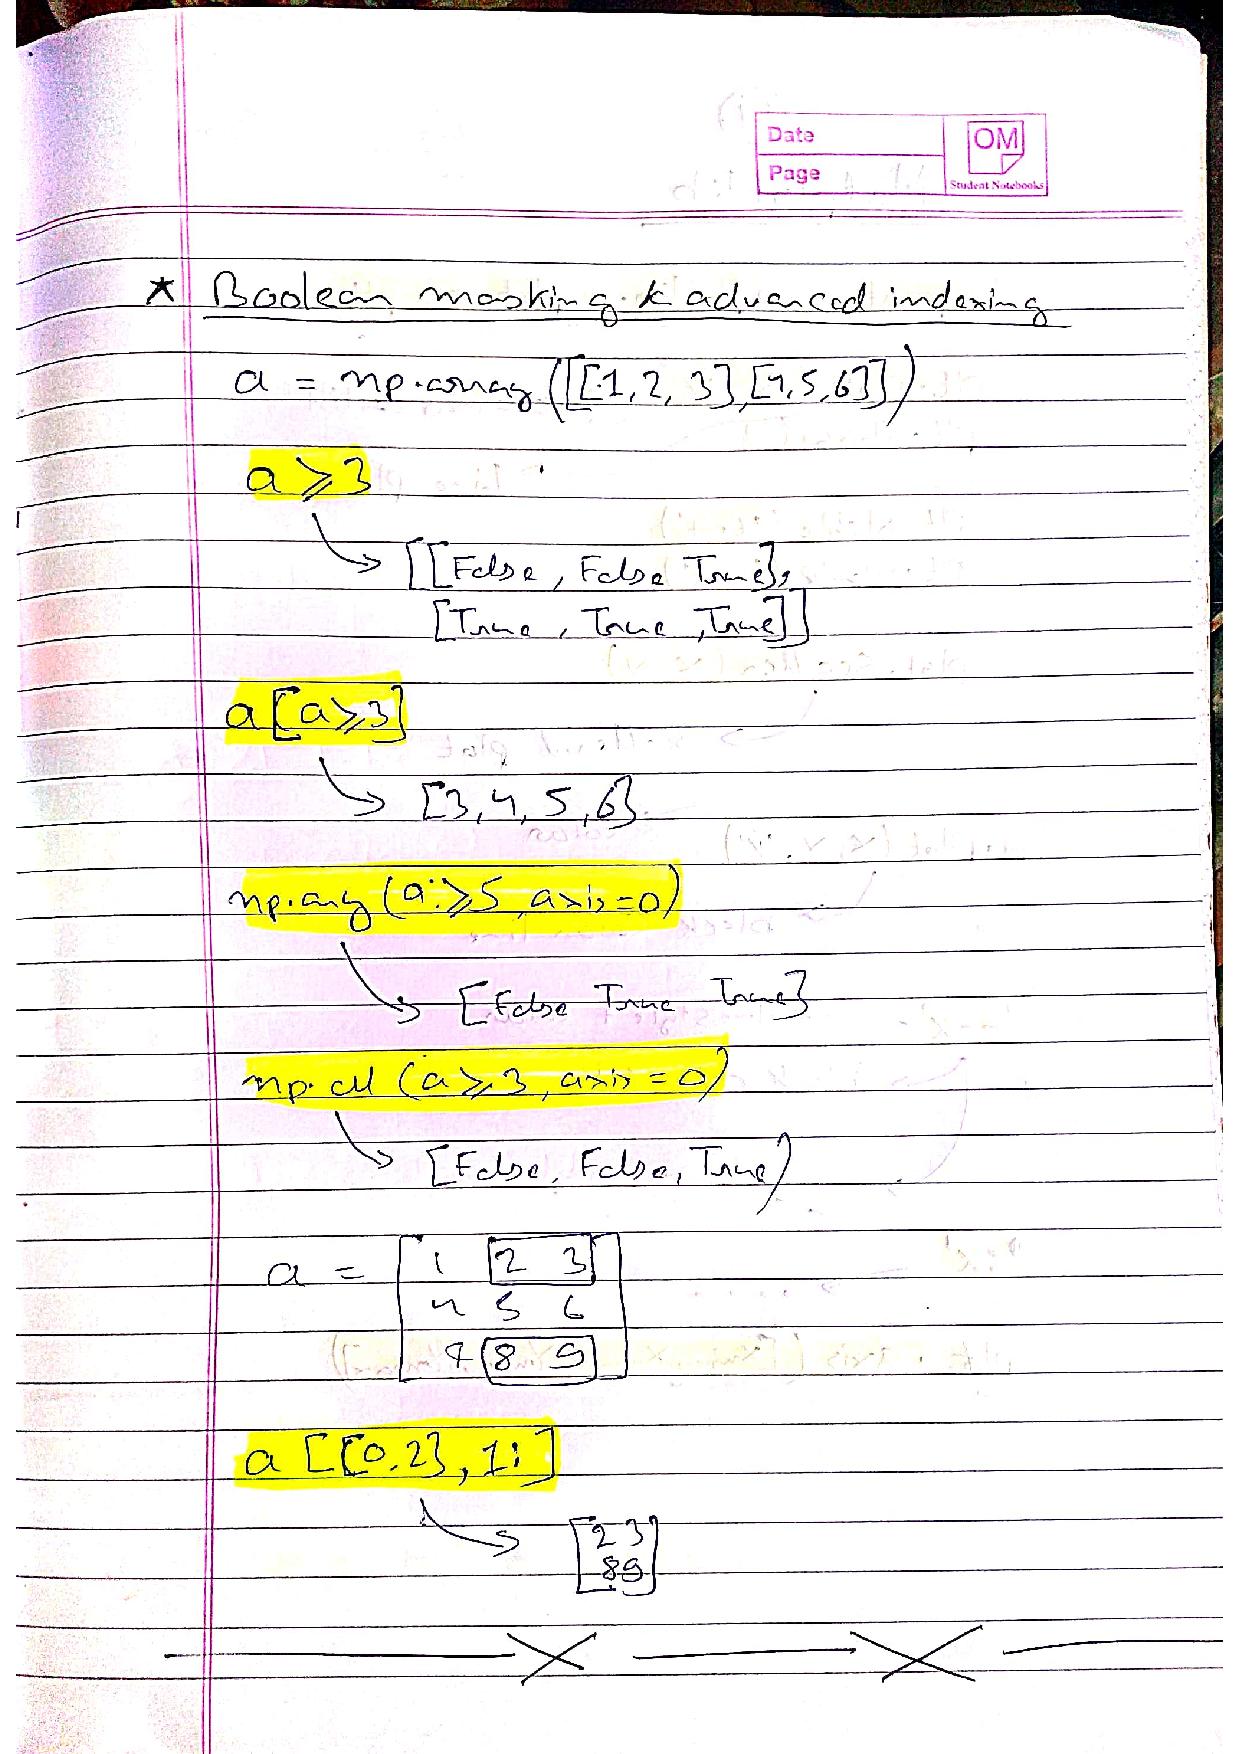 Date
OM
Page
Student Notebooks
* Boolean masking & advanced indexing
a = np.array([[1,2,3],[4,5,6]])
a ⩾ 3
[[False, False True],
[True, True, True]]
a[a⩾3]
[3,4,5,6]
np.any(a⩾5, axis=0)
[False True True]
np.all (a⩾3, axis=0)
[False, False, True)
a = 1 2 3
4 5 6
7 8 9
a [[0,2], 1:]
2 3
8 9